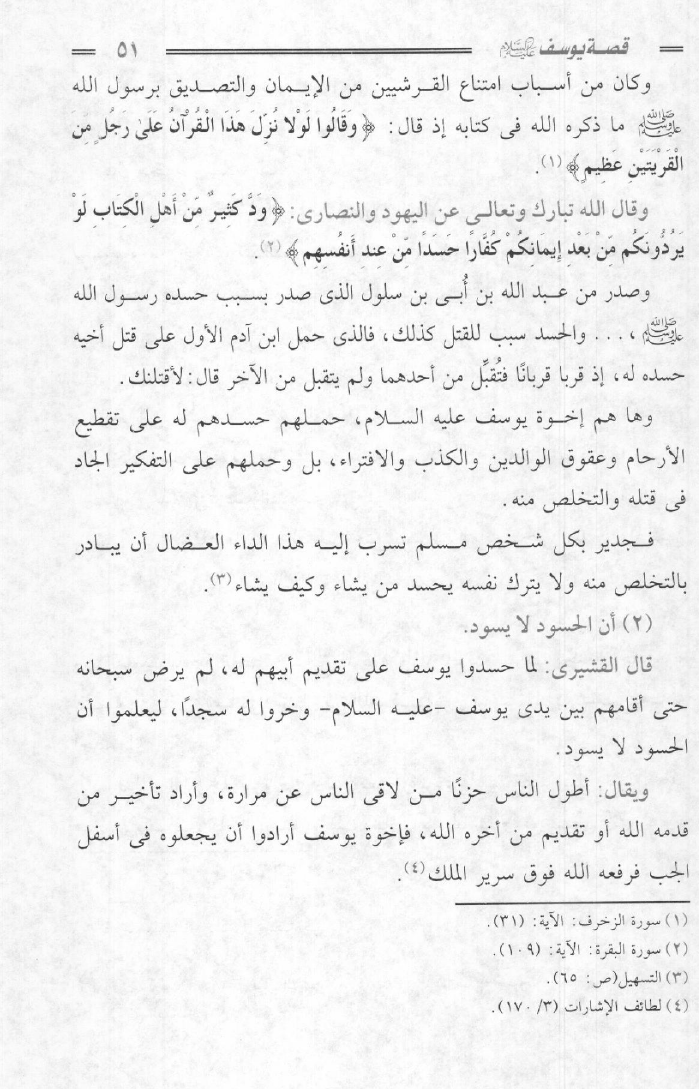 قصة يوسف عليه السلام ٥١
وكان من أسباب امتناع القرشيين من الإيمان والتصديق برسول الله
ﷺ ما ذكره الله فى كتابه إذ قال: ﴿وَقَالُوا لَوْلا نُزِّلَ هَذَا الْقُرْآنُ عَلَىٰ رَجُلٍ مِّنَ
الْقَرْيَتَيْنِ عَظِيمٍ﴾(١).
وقال الله تبارك وتعالى عن اليهود والنصارى: ﴿وَدَّ كَثِيرٌ مِّنْ أَهْلِ الْكِتَابِ لَوْ
يَرُدُّونَكُم مِّنْ بَعْدِ إِيمَانِكُمْ كُفَّارًا حَسَدًا مِّنْ عِندِ أَنفُسِهِم﴾(٢).
وصدر من عبد الله بن أُبى بن سلول الذى صدر بسبب حسده رسول الله
ﷺ، ... والحسد سبب للقتل كذلك، فالذى حمل ابن آدم الأول على قتل أخيه
حسده له، إذ قربا قربانًا فتُقبِّل من أحدهما ولم يتقبل من الآخر قال: لأقتلنك.
وها هم إخوة يوسف عليه السلام، حملهم حسدهم له على تقطيع
الأرحام وعقوق الوالدين والكذب والافتراء، بل وحملهم على التفكير الجاد
فى قتله والتخلص منه.
فجدير بكل شخص مسلم تسرب إليه هذا الداء العضال أن يبادر
بالتخلص منه ولا يترك نفسه يحسد من يشاء وكيف يشاء(٣).
(٢) أن الحسود لا يسود.
قال القشيرى: لما حسدوا يوسف على تقديم أبيهم له، لم يرض سبحانه
حتى أقامهم بين يدى يوسف -عليه السلام- وخروا له سجدًا، ليعلموا أن
الحسود لا يسود.
ويقال: أطول الناس حزنًا من لاقى الناس عن مرارة، وأراد تأخير من
قدمه الله أو تقديم من أخره الله، فإخوة يوسف أرادوا أن يجعلوه فى أسفل
الجب فرفعه الله فوق سرير الملك(٤).
(١) سورة الزخرف: الآية: (٣١).
(٢) سورة البقرة: الآية: (١٠٩).
(٣) التسهيل(ص: ٦٥).
(٤) لطائف الإشارات (٣/ ١٧٠).